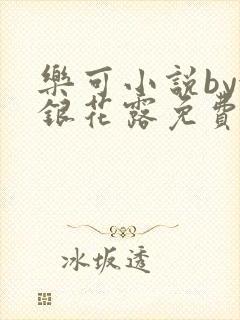 樂可小説by
銀花露免費
冰坂透